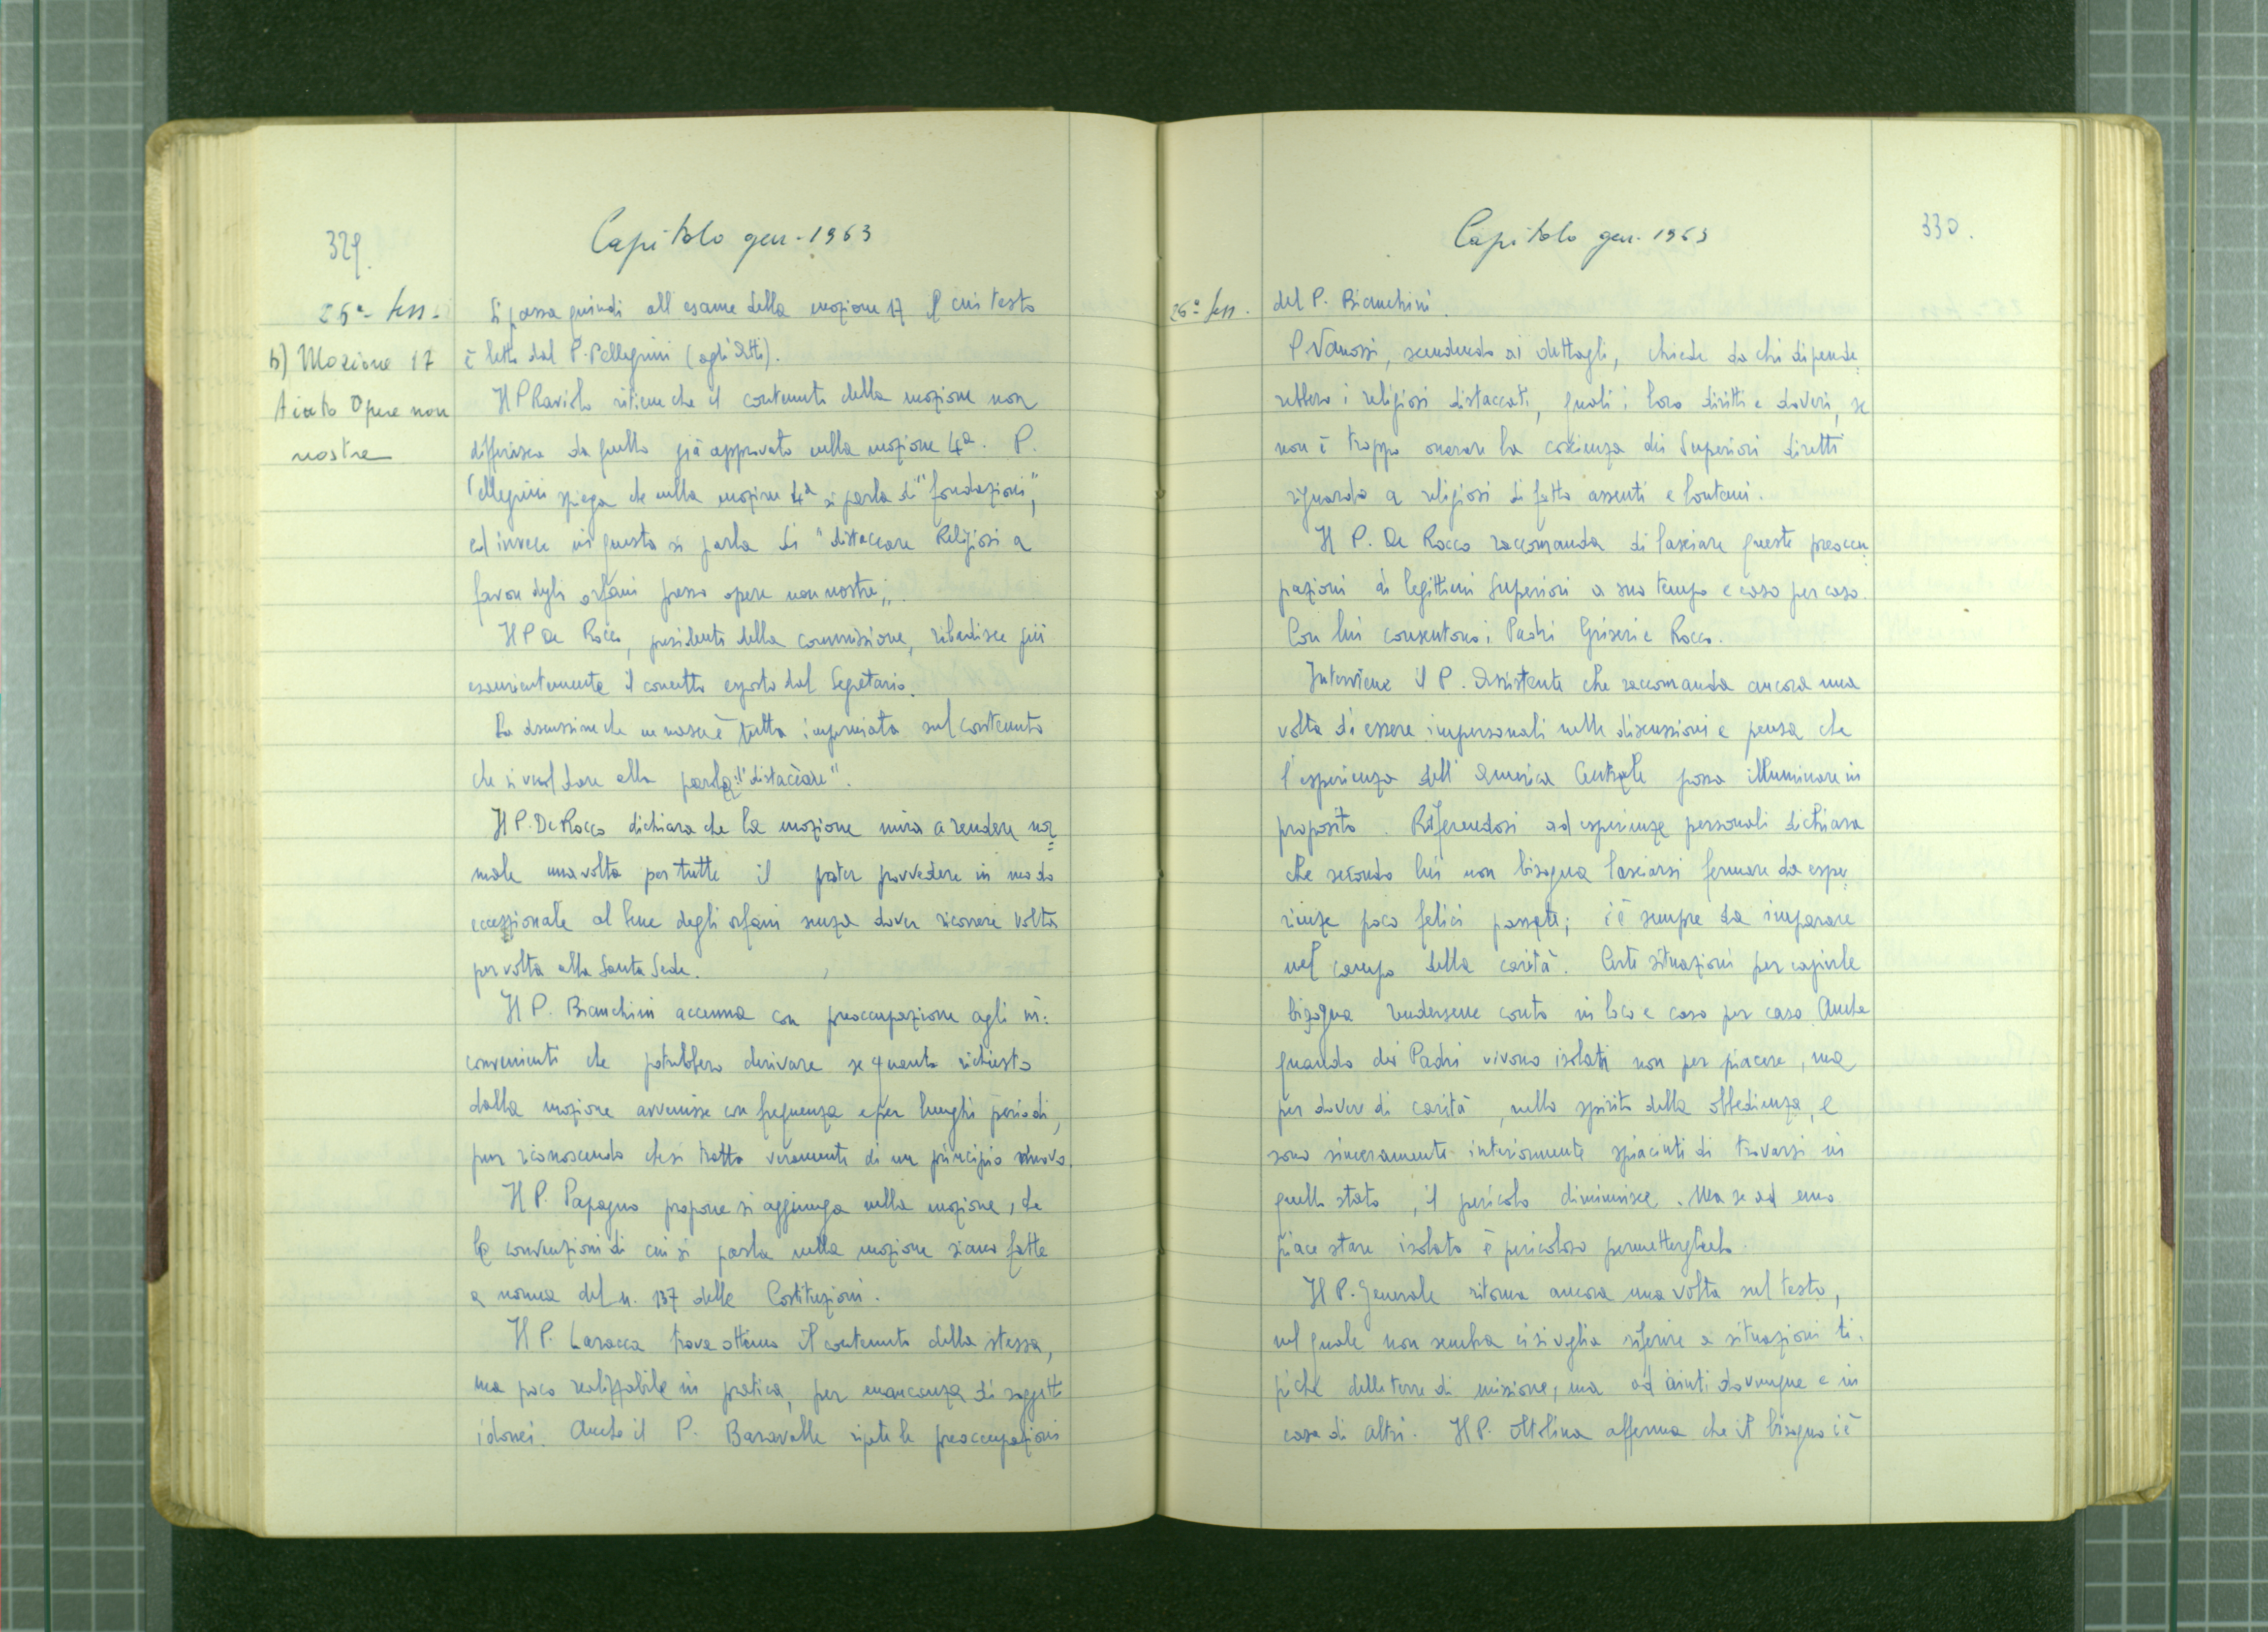 329.
Capitolo gen. 1963
26ª- sess.
b) Mozione 17
Aiuto Opere non
nostre
Si passa quindi all'esame della mozione 17 il cui testo
è letto dal P. Pellegrini (agli Atti).
Il P Raviolo ritiene che il contenuto della mozione non
differisca da quello già approvato nella mozione 4ª. P.
Pellegrini spiega che nella mozione 4ª si parla di "fondazioni",
ed invece in questa si parla di "distaccare Religiosi a
favore degli orfani presso opere non nostre".
Il P De Rocco, presidente della commissione, ribadisce più
esaurientemente il concetto esposto dal Segretario.
La discussione che ne nasce è tutta imperniata sul contenuto
che si vuol dare alla parola: "distaccare".
Il P. De Rocco dichiara che la mozione mira a rendere nor=
male una volta per tutte il poter provvedere in modo
eccezionale al bene degli orfani senza dover ricorrere volta
per volta alla Santa Sede.
Il P. Bianchini accenna con preoccupazione agli in=
convenienti che potrebbero derivare se quanto richiesto
dalla mozione avvenisse con frequenza e per lunghi periodi,
pur riconoscendo che si tratta veramente di un principio nuovo.
Il P. Papagno propone si aggiunga nella mozione, che
le convenzioni di cui si parla nella mozione siano fatte
a norma del n. 137 delle Costituzioni.
Il P. Laracca trova ottimo il contenuto della stessa,
ma poco realizzabile in pratica, per mancanza di soggetti
idonei. Anche il P. Baravalle ripete le preoccupazioni
Capitolo gen. 1963
330.
26ª- sess.
del P. Bianchini.
P Vanossi, scendendo ai dettagli, chiede da chi dipende=
rebbero i religiosi distaccati, quali i loro diritti e doveri, se
non è troppo onerare la coscienza dei Superiori diretti
riguardo a religiosi di fatto assenti e lontani.
Il P. De Rocco raccomanda di lasciare queste preoccu=
pazioni ai legittimi Superiori a suo tempo e caso per caso.
Con lui consentono i Padri Griseri e Rocco.
Interviene il P. Assistente che raccomanda ancora una
volta di essere impersonali nelle discussioni e pensa che
l'esperienza dell'America Centrale possa illuminare in
proposito. Riferendosi ad esperienze personali dichiara
che secondo lui non bisogna lasciarsi fermare da espe=
rienze poco felici passate; c'è sempre da imparare
nel campo della carità. Certe situazioni per capirle
bisogna rendersene conto in loco e caso per caso. Anche
quando dei Padri vivono isolati non per piacere, ma
per dovere di carità, nello spirito della obbedienza, e
sono sinceramente interiormente spiacenti di trovarsi in
quello stato, il pericolo diminuisce. Ma se ad uno
piace stare isolato è pericoloso permetterglielo.
Il P. Generale ritorna ancora una volta sul testo,
nel quale non sembra ci si voglia riferire a situazioni ti=
piche delle terre di missione, ma ad aiuti dovunque e in
casa di altri. Il P. Ottolina afferma che il bisogno c'è